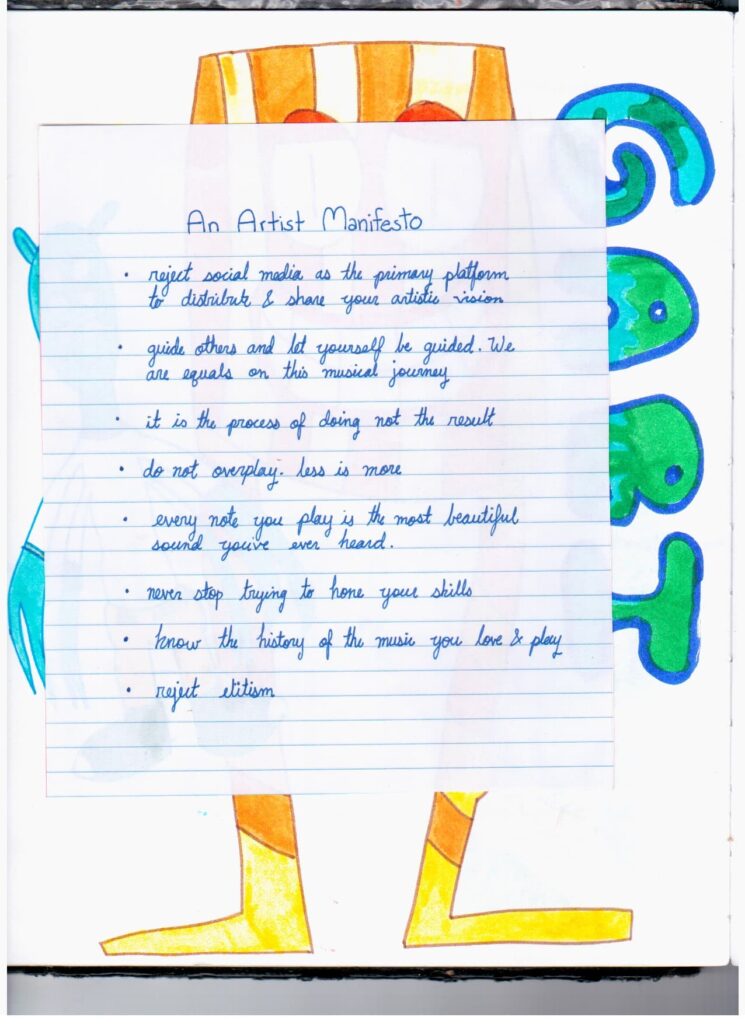 An Artist Manifesto
• reject social media as the primary platform
to distribute & share your artistic vision
• guide others and let yourself be guided. We
are equals on this musical journey
• it is the process of doing not the result
• do not overplay. less is more
• every note you play is the most beautiful
sound you've ever heard.
• never stop trying to hone your skills
• know the history of the music you love & play
• reject elitism